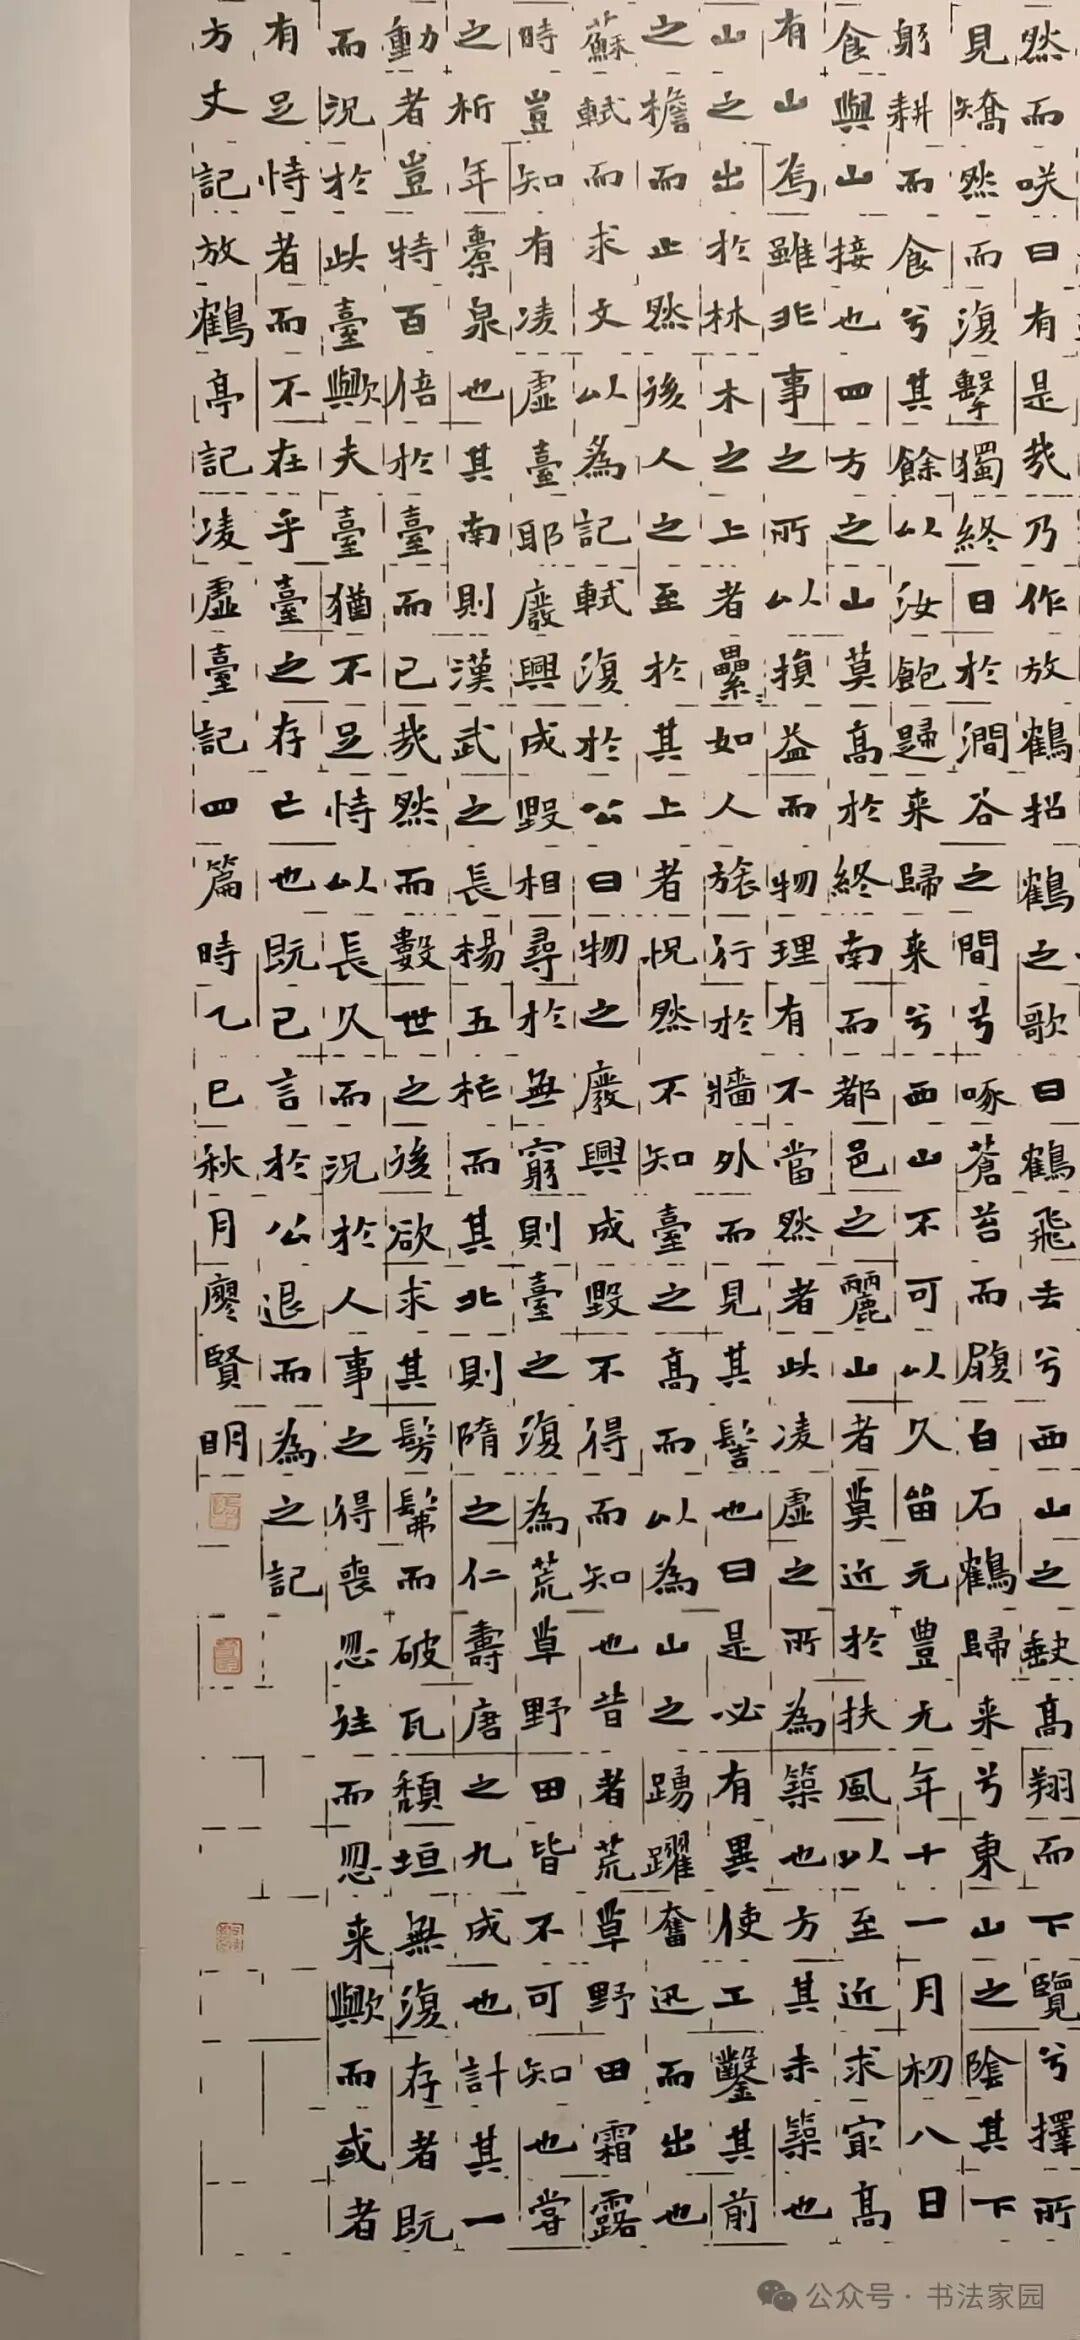 然而咲曰有是哉乃作放鶴招鶴之歌曰鶴飛去兮西山之缺高翔而下覽兮擇所
見矯然而復擊獨終日於澗谷之間兮啄蒼苔而履白石鶴歸来兮東山之陰其下
躬耕而食兮其餘以汝飽歸来歸来兮西山不可以久留元豊元年十一月初八日
食與山接也四方之山莫高於終南而都邑之麗山者莫近於扶風以至近求冣高
有山焉雖非事之所以損益而物理有不當然者此凌虛之所為築也方其未築也
山之出於林木之上者纍〻如人旅行於牆外而見其髻也曰是必有異使工鑿其前
之檐而止然後人之至於其上者怳然不知臺之高而以為山之踴躍奮迅而出也
蘇軾而求文以為記軾復於公曰物之廢興成毀不得而知也昔者荒草野田霜露
時豈知有凌虛臺耶廢興成毀相尋於無窮則臺之復為荒草野田皆不可知也嘗
之析年橐泉也其南則漢武之長楊五柞而其北則隋之仁壽唐之九成也計其一
動者豈特百倍於臺而已哉然而數世之後欲求其髣髴而破瓦頹垣無復存者既
而況於此臺歟夫臺猶不足恃以長久而況於人事之得喪忽往而忽来歟而或者
有足恃者而不在乎臺之存亡也既已言於公退而為之記
方丈記放鶴亭記凌虛臺記四篇時乙巳秋月廖賢明
公众号 · 书法家园